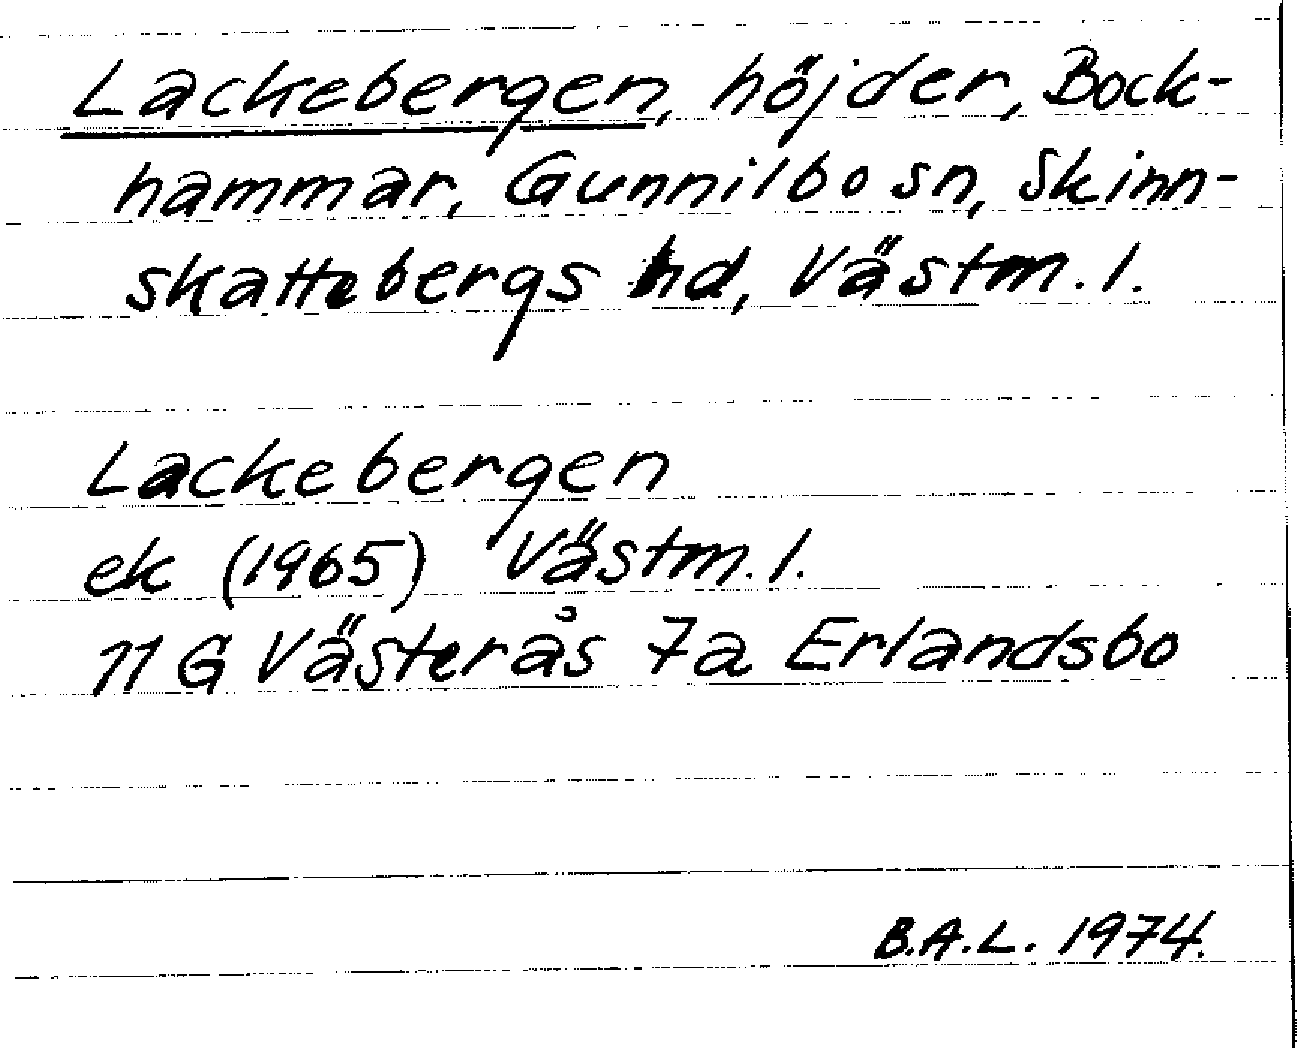 Lackebergen, höjder, Bock-
hammar, Gunnilbo sn, Skinn-
skattebergs hd, Västm. l.
Lackebergen
ek (1965) Västm. l.
11 G Västerås 7a Erlandsbo
B.A.L. 1974.